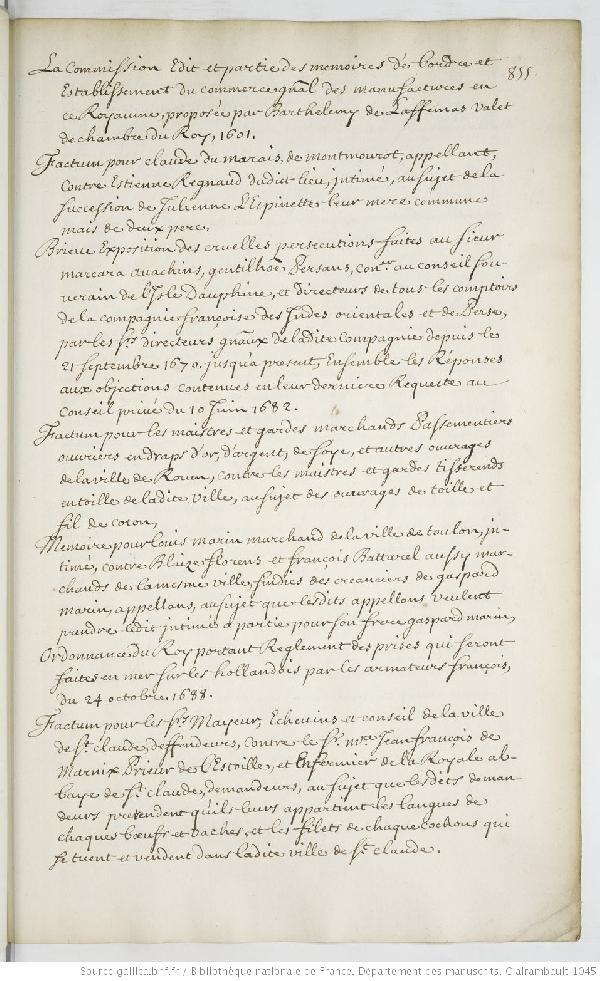 855.
La Commission Edit et partie des memoires de l'ordre et
Establissement du commerce gnãl des manufactures en
ce Royaume, proposée par Barthelemy de Laffemas valet
de chambre du Roy, 1601.
Factum pour claude du marais, de montmourot, appellant,
contre Estienne Regnaud dudit lieu, intimé, au sujet de la
succession de Julienne L'Espinette leur mere commune
mais de deux pere.
Brieue Exposition des cruelles persecutions faites au sieur
marcara auachins, gentilhõe Persans, con.er au conseil sou-
uerain de l'Isle Dauphine, et Directeurs de tous les comptoirs
de la compagnie françoise des Indes orientales et de Perse,
par les s.rs directeurs gnãux de ladite compagnie depuis le
21 septembre 1670. jusqu'a present, Ensemble les Réponses
aux objections contenues en leur derniere Requeste au
Conseil priué du 10 Juin 1682.
Factum pour les maistres et gardes marchands Passementiers
ouuriers en draps d'or, d'argent, de soye, et autres ouurages
de la ville de Rouen, contre les maistres et gardes tisserends
en toille de ladite ville, au sujet des ouurages de toille et
fil de coton,
Memoire pour louis marin marchand de la ville de toulon, in-
timé, contre Blaize florens et françois Battarel aussy mar-
chands de la mesme ville, sindics des creanciers de gaspard
marin, appellans, au sujet que lesdits appellans veulent
prendre ledit intimé a partie pour son frere gaspard marin,
Ordonnance du Roy portant Reglement des prises qui seront
faites en mer sur les hollandois par les armateurs françois,
du 24 octobre 1688.
Factum pour les s.rs Mayeur, Echevins et conseil de la ville
de S.t claude, deffendeurs, contre le S.r m.re Jean françois de
Marnix Prieur de l'Estoille, et Enfermier de la Royale ab-
baye de S.t claude, demandeurs, au sujet que lesdits deman-
deurs pretendent qu'ils leurs appartient les langues de
chaques bœufs et vaches, et les filets de chaque cochons qui
se tuent et vendent dans ladite ville de S.t claude.
Source gallica.bnf.fr / Bibliothèque nationale de France. Département des manuscrits. Clairambault 1045